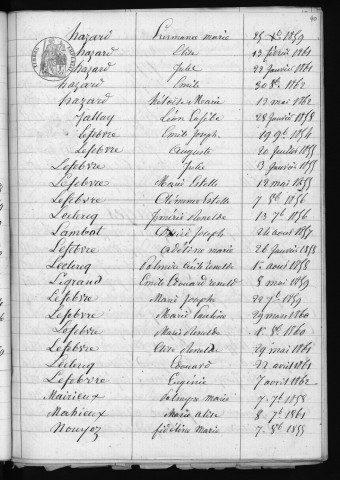 hazard Hermance marie 25 Xbre 1859
hazard Elise 13 février 1861
hazard Julie 22 Janvier 1861
hazard Emile 30 8bre 1862
hazard Marie 13 mai 1862
Jallay Léon 28 Janvier 1858
Lefebvre Emile Joseph 19 9bre 1854
Lefebvre Auguste 20 Juillet 1855
Lefebvre Julie 3 Janvier 1855
Lefebvre Marie Estelle 12 mai 1855
Lefebvre Clémence Estelle 7 8bre 1856
Leclercq Renelde 13 7bre 1856
Lambot Joseph 26 août 1857
Lefebvre adeline marie 26 Janvier 1858
Leclercq Palmire Cécile renelde 1er août 1858
Legrand Emile Edouard renold 8 mai 1859
Lefebvre Marie Josephe 22 7bre 1859
Lefebvre Marie Pauline 29 mars 1860
Lefebvre Marie Renelde 1er 8bre 1860
Lefebvre Renelde 29 mai 1861
Leclercq Edouard 22 avril 1861
Lefebvre Eugénie 7 avril 1862
Mairieux Palmyre marie 7 7bre 1858
Mahieux Marie alise 8 7bre 1861
Nouyez fidéline marie 7 8bre 1855